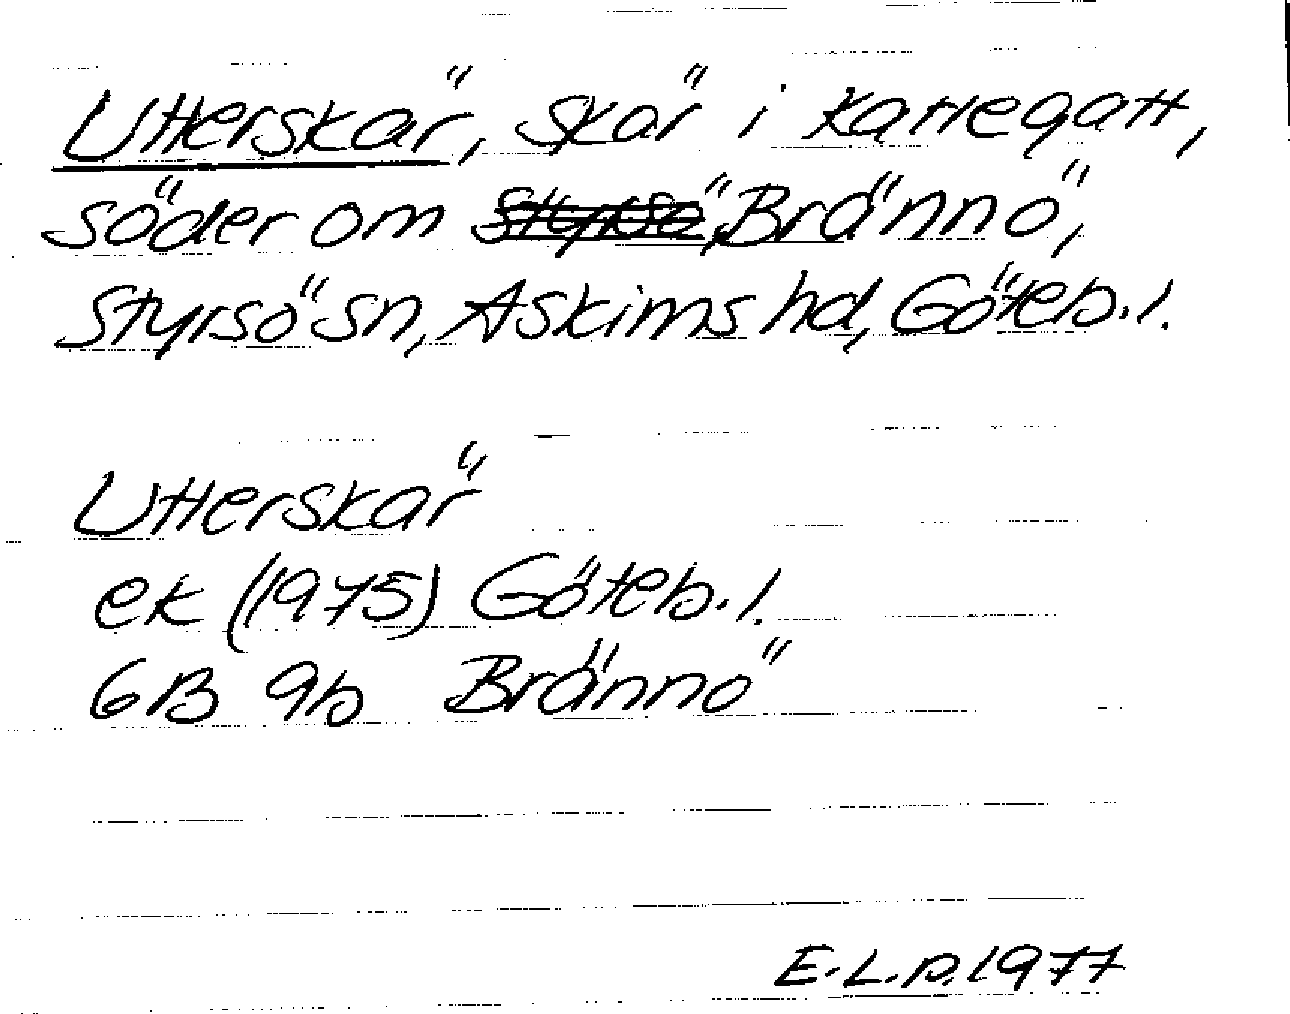 Utterskär, skär i Kattegatt,
söder om Styrsö, Brännö,
Styrsö sn, Askims hd, Göteb. l.
Utterskär
ek (1975) Göteb. l.
6B 9b Brännö
E.L.P. 1977